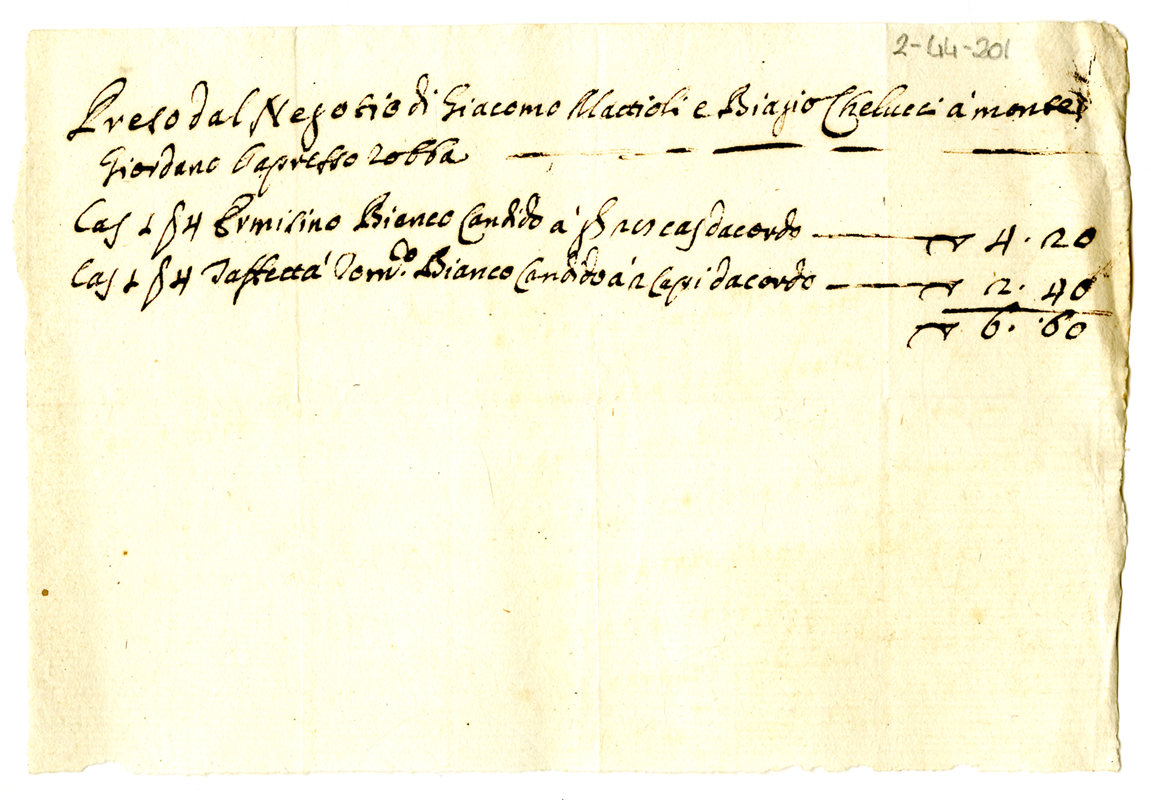 2-44-201
Preso dal Negotio di Giacomo Mattioli e Biagio Chelucci à monte
Giordano l'apresso robba
Cas 1 p 4 Ermisino Bianco Candido à cas dacordo — ▽ 4.20
Cas 1 p 4 Taffettà Rom.º Bianco Candido à 2 Capi dacordo — ▽ 2.40
▽ 6.60